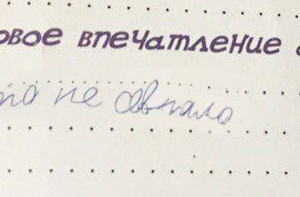 овое впечатление о
не совпало